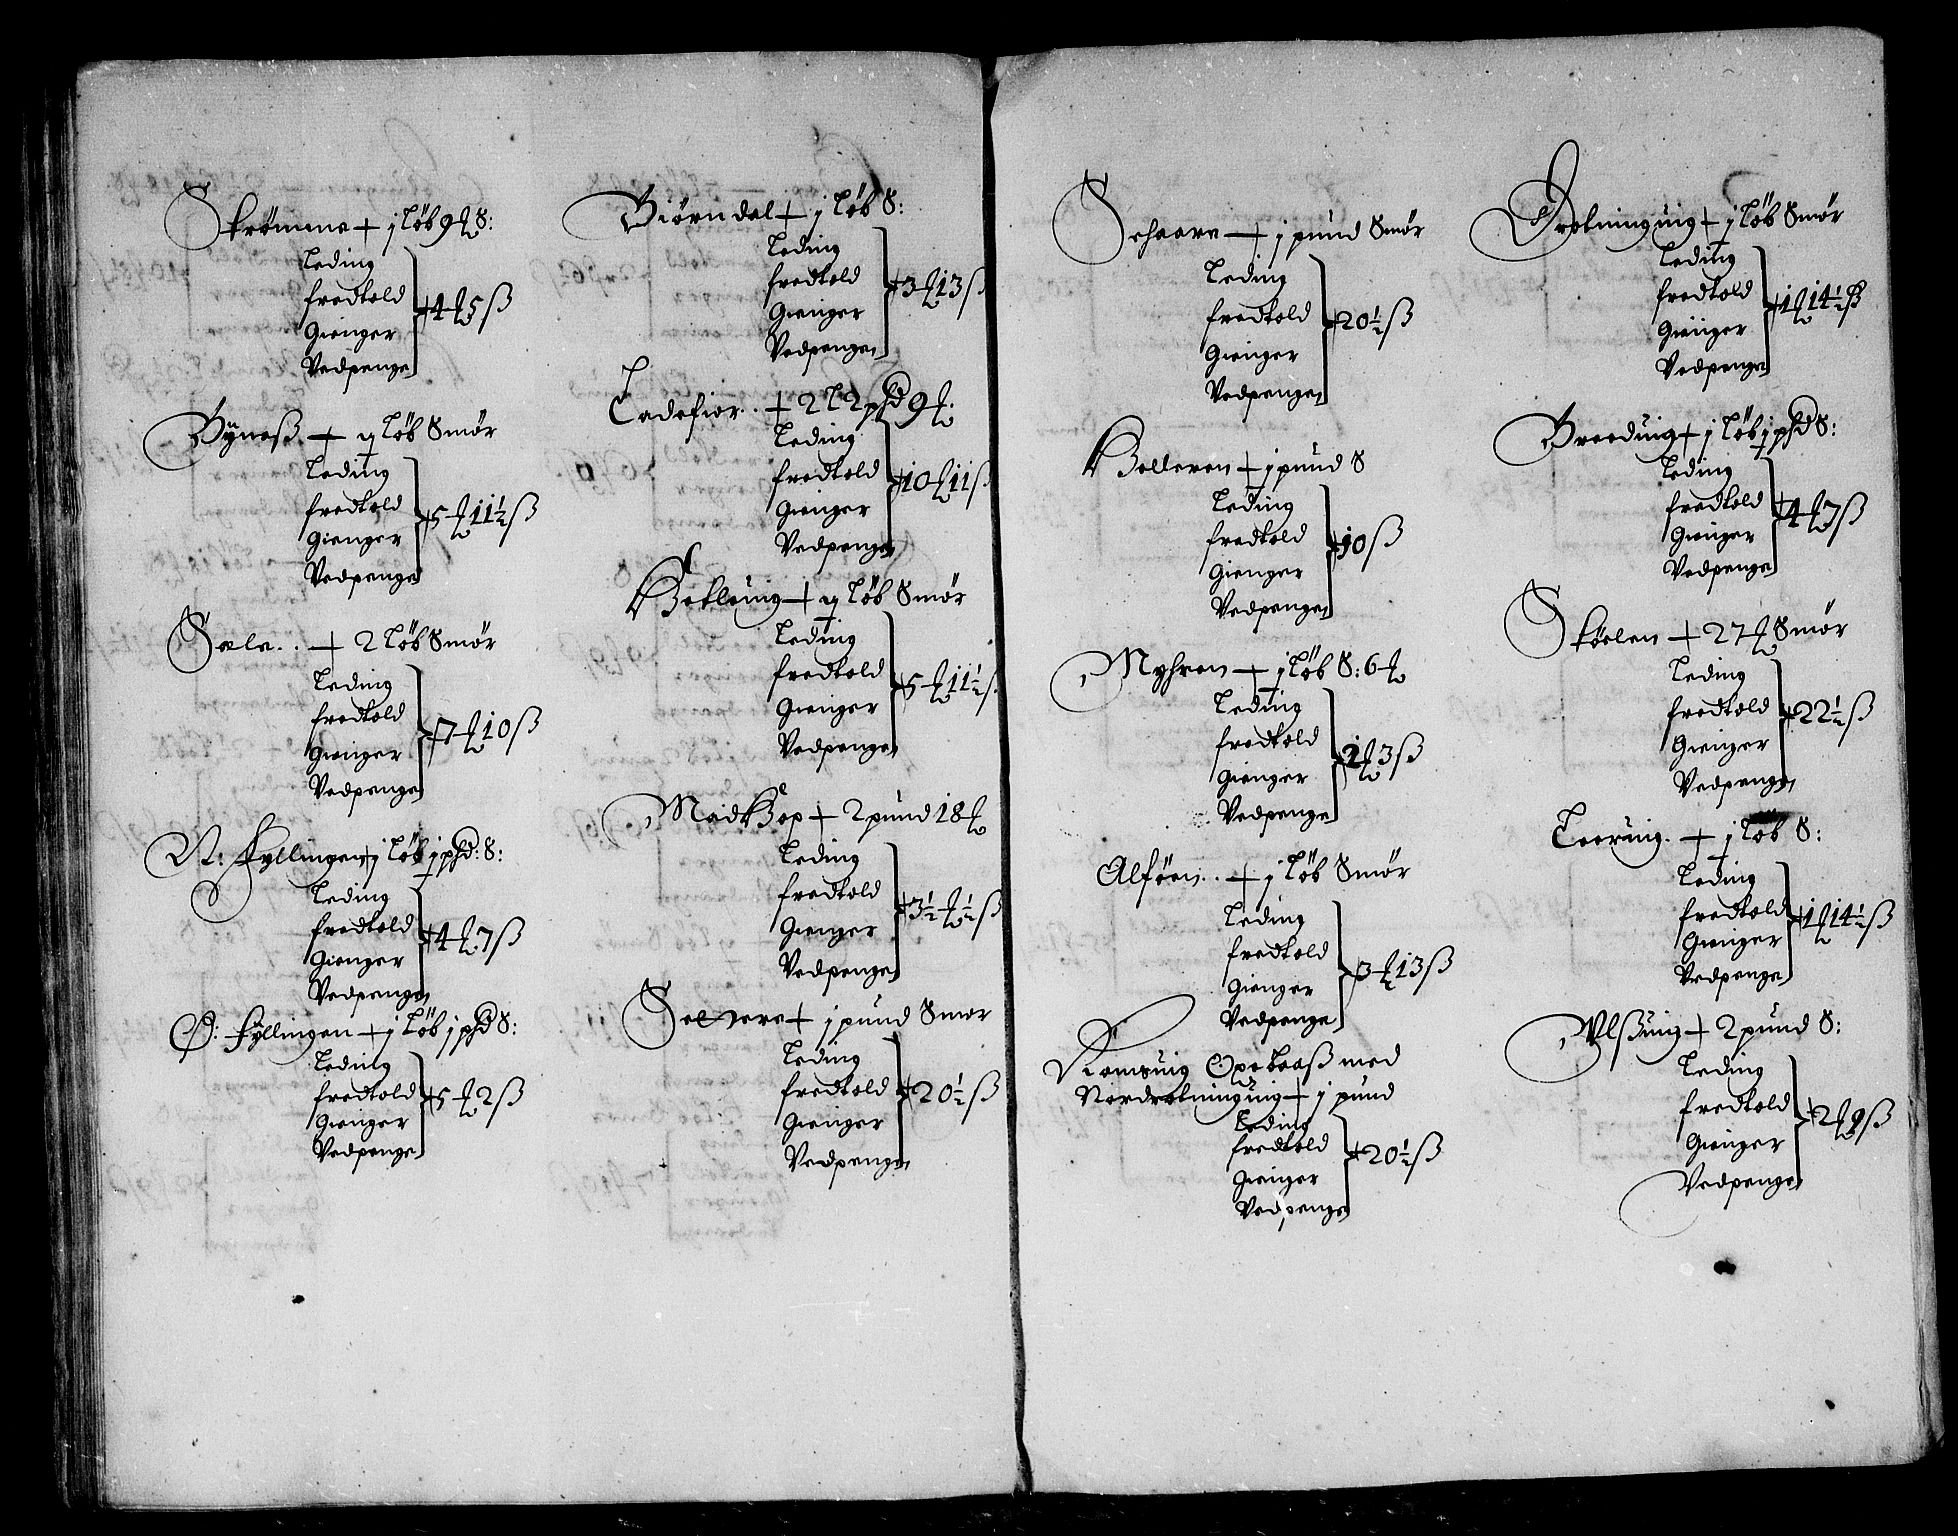 Strömme + j løb 9 ℔ S:
Leding
fredtold
Gienger
Vedpenge
4 ℔ 5 ß
Bÿneß + ɋ løb Smør
Leding
fredtold
Gienger
Vedpenge
5 ℔ 11½ ß
Sæle.. + 2 løb Smør
Leding
fredtold
Gienger
Vedpenge
7 ℔ 10 ß
N: Fyllingen + j løb j pħd: S:
Leding
fredtold
Gienger
Vedpenge
4 ℔ 7 ß
Ø: Fÿllingen + j løb j pħd S:
Leding
fredtold
Gienger
Vedpenge
5 ℔ 2 ß
Biørndal + j løb S:
Leding
fredtold
Gienger
Vedpenge
3 ℔ 13 ß
Ladefior.. + 2 l 2 pħd 9 ℔.
Leding
fredtold
Gienger
Vedpenge
10 ℔ 11 ß
+ ɋ løb Smør
Leding
fredtold
Gienger
Vedpenge
5 ℔ 11½ ß
+ 2 pund 18 ℔
Leding
fredtold
Gienger
Vedpenge
3½ ℔ ½ ß
+ j pund Smør
Leding
fredtold
Gienger
Vedpenge
20½ ß
Schaare + j pund Smør
Leding
fredtold
Gienger
Vedpenge
20½ ß
+ j pund S
Leding
fredtold
Gienger
Vedpenge
10 ß
Myhren + j løb S: 6 ℔
Leding
fredtold
Gienger
Vedpenge
2 ℔ 3 ß
Alföen.. + j løb Smør
Leding
fredtold
Gienger
Vedpenge
3 ℔ 13 ß
med
Nordretningung + j pund
Leding
fredtold
Gienger
Vedpenge
20½ ß
Drotningung + j løb Smør
Leding
fredtold
Gienger
Vedpenge
1 ℔ 14½ ß
Breduig + j løb j pħd S:
Leding
fredtold
Gienger
Vedpenge
4 ℔ 7 ß
Skölen + 27 ℔ Smør
Leding
fredtold
Gienger
Vedpenge
22½ ß
Leeruig. + j løb S:
Leding
fredtold
Gienger
Vedpenge
1 ℔ 14½ ß
Vlßuig + 2 pund S:
Leding
fredtold
Gienger
Vedpenge
2 ℔ 9 ß